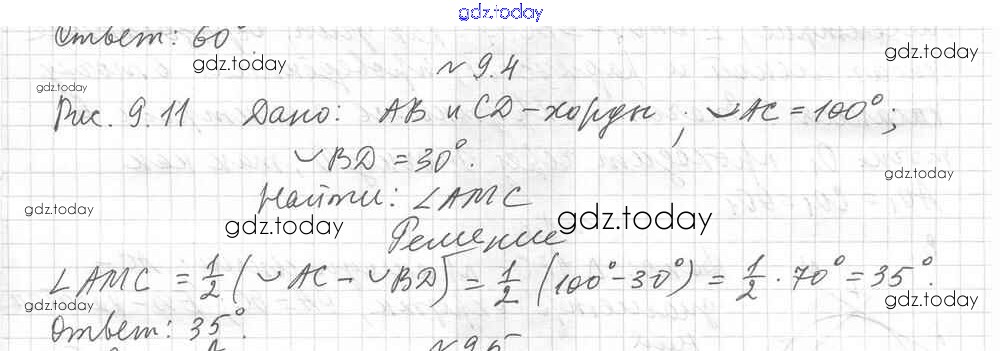 gdz.today
Ответ: 60°.
gdz.today
gdz.today
№ 9.4
gdz.today
Рис. 9.11 Дано: AB и CD - хорды; ◡AC = 100°;
◡BD = 30°.
gdz.today
Найти: ∠AMC
gdz.today
gdz.today
gdz.today
Решение
∠AMC = 1/2 (◡AC - ◡BD) = 1/2 (100° - 30°) = 1/2 · 70° = 35°.
gdz.today
Ответ: 35°.
№ 9.5